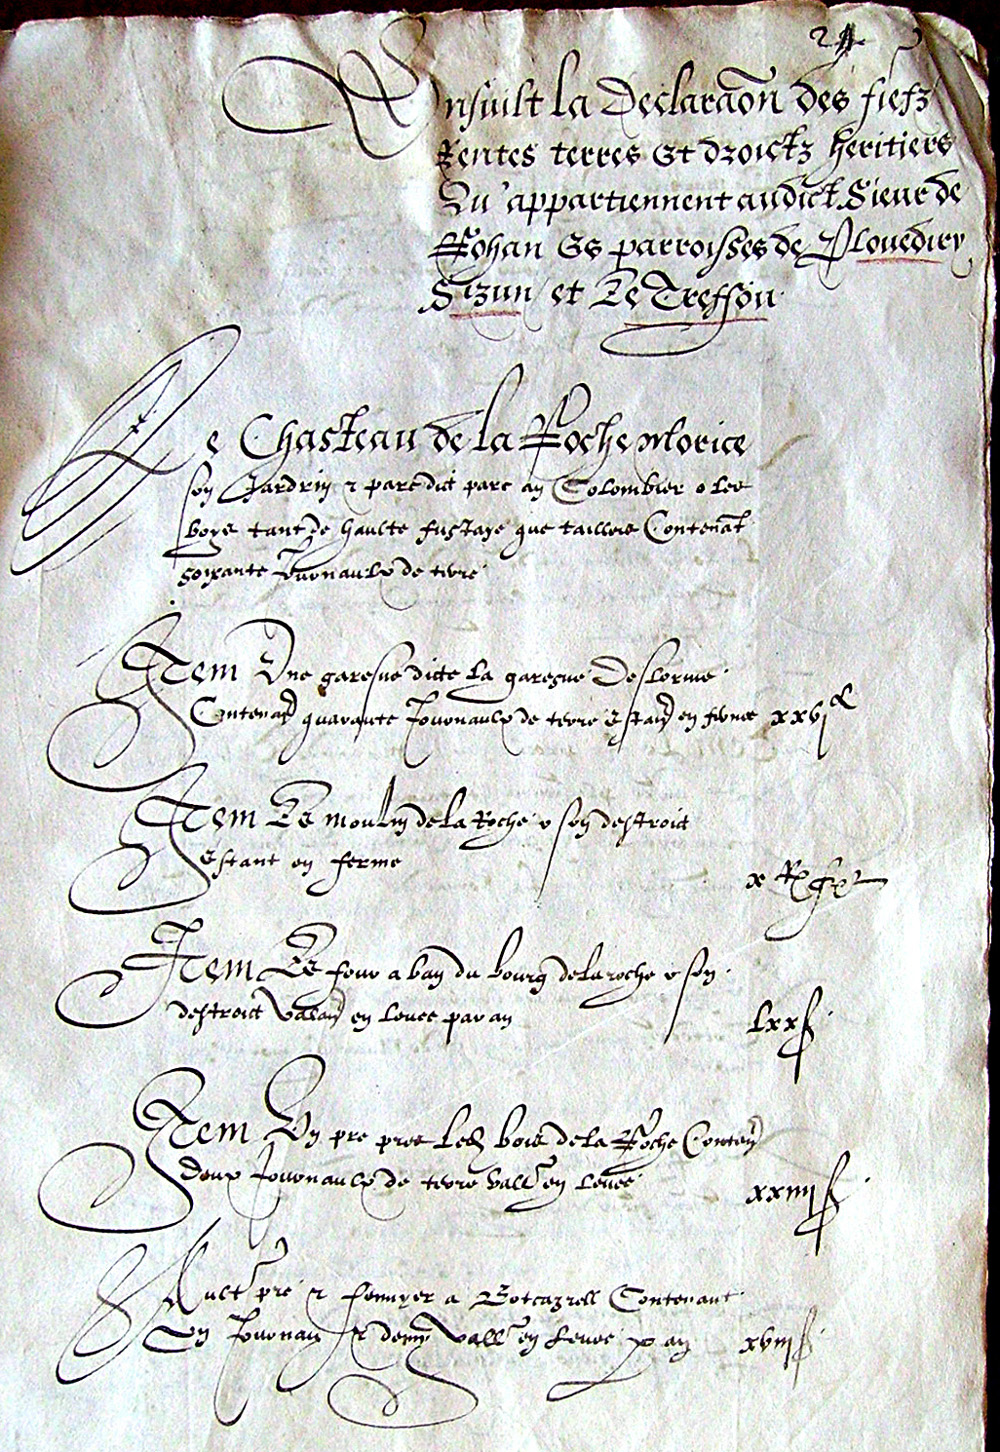 Ensuilt la Declaraõn des fiefz
Rentes terres Et droictz heritiers
Qui appartiennent audict Sieur de
Rohan Es parroisses de Plouediry
Sizun et Le Treffou
Le Chasteau de la Roche Morice
son Jardrin & parc dict parc an Colombier o les
boys tant de haulte fustaye que tailleis Contenãt
soixante Journaulx de terre
Item Une garesne dicte la garesne Deslorme
Contenãt quarante Journaulx de terre Estant en ferme xxvi
Item Le moulin de la Roche & son destroict
Estant en ferme
Item Le four a ban du bourg de la roche & son
destroict Valant en levee par an lxx s
Item Un pre pres les bois de la Roche Contenãt
deux Journaulx de terre vall en levee xxiiii s
Ault pre & fennyer a Botcazrell Contenant
Un Journau & demy vall en levee p an xviii s